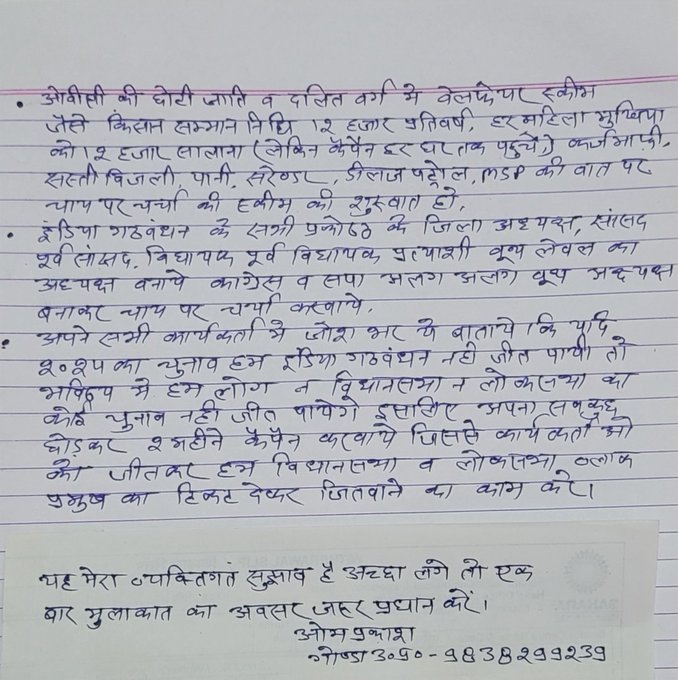 • ओबीसी की छोटी जाति व दलित वर्ग मे वेलफेयर स्कीम
जैसे किसान सम्मान निधि १२ हजार प्रतिवर्ष, हर महिला मुखिया
को १२ हजार सालाना (लेकिन कैंपेन हर घर तक पहुचे,) कर्जमाफी,
सस्ती बिजली, पानी, सरेण्डर, डीलज पट्रोल, MSP की बात पर
चाय पर चर्चा की स्कीम की शुरुवात हो,
• इंडिया गठबंधन के सभी प्रकोष्ठ के जिला अध्यक्ष, सांसद
पूर्व सांसद, विधायक पूर्व विधायक प्रत्याशी बूथ लेवल का
अध्यक्ष बनाये कांग्रेस व सपा अलग अलग बूथ अध्यक्ष
बनाकर चाय पर चर्चा करवाये,
• अपने सभी कार्यकर्ता मे जोश भर ये बाताये कि यदि
२०२४ का चुनाव हम इंडिया गठबंधन नही जीत पायी तो
भविष्य मे हम लोग न विधानसभा न लोकसभा का
कोई चुनाव नही जीत पायेगे इसलिए अपना सबकुछ
छोड़कर २ महीने कैंपेन करवाये जिससे कार्यकर्ता ओ
को जीतकर हम विधानसभा व लोकसभा ब्लाक
प्रमुख का टिकट देकर जितवाने का काम करे।
यह मेरा व्यक्तिगत सुझाव है अच्छा लगे तो एक
बार मुलाकात का अवसर जरूर प्रधान करें।
ओम प्रकाश
गोण्डा उ०प्र० - 9838299239